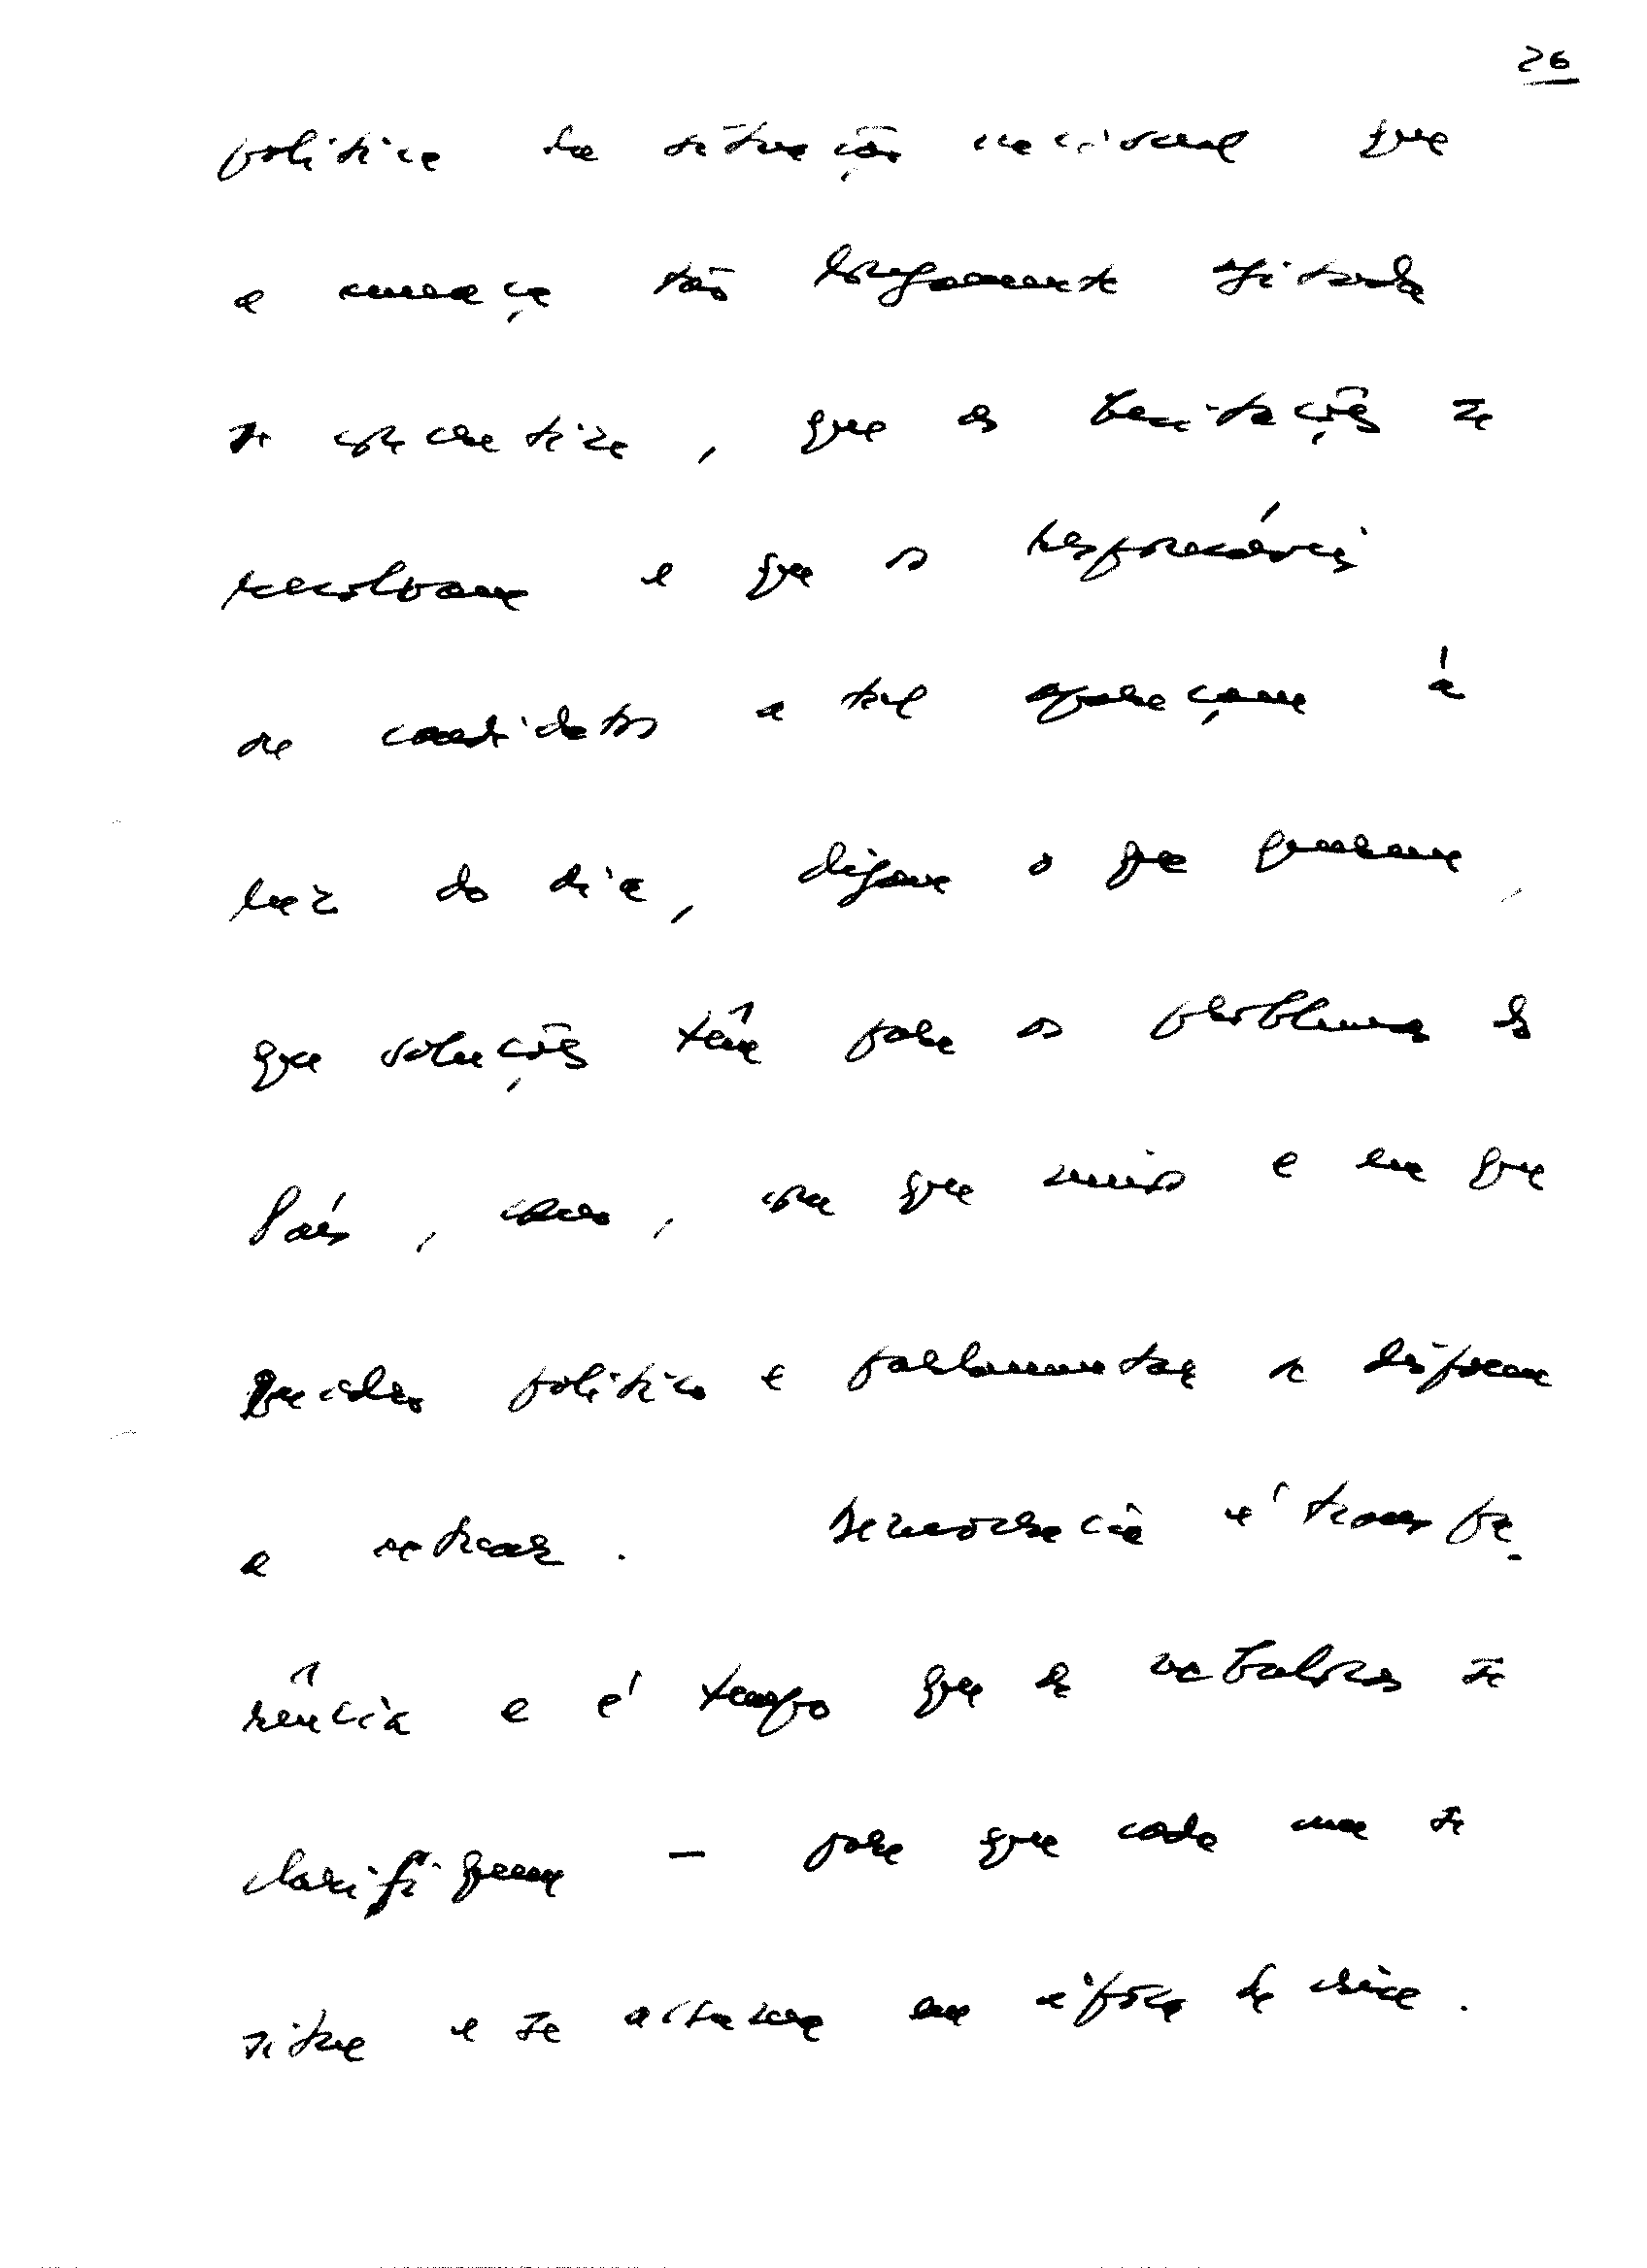 26
política da situação nacional que
a ameaça tão longamente agitada
se concretize, que as tentações se
resolvam e que os responsáveis
ou candidatos a tal apareçam à
luz do dia, digam o que querem,
que soluções têm para os problemas do
País, como, com que meios e em que
quadro político e parlamentar se dispõem
a actuar. Democracia é transpa-
rência e é tempo que as nebulosas se
clarifiquem — para que cada um se
situe e se actue em época de crise.